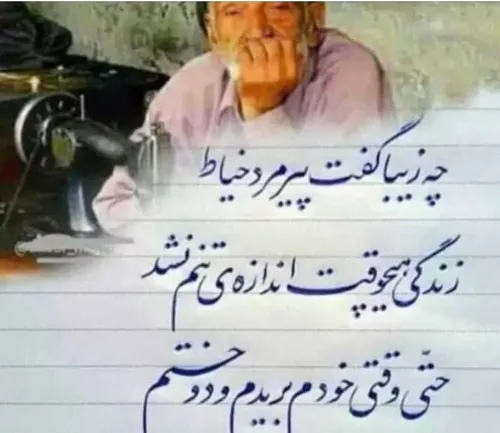 چه زیبا گفت پیرمرد خیاط
زندگی هیچوقت اندازه‌ی تنم نشد
حتّی وقتی خودم بریدم و دوختم